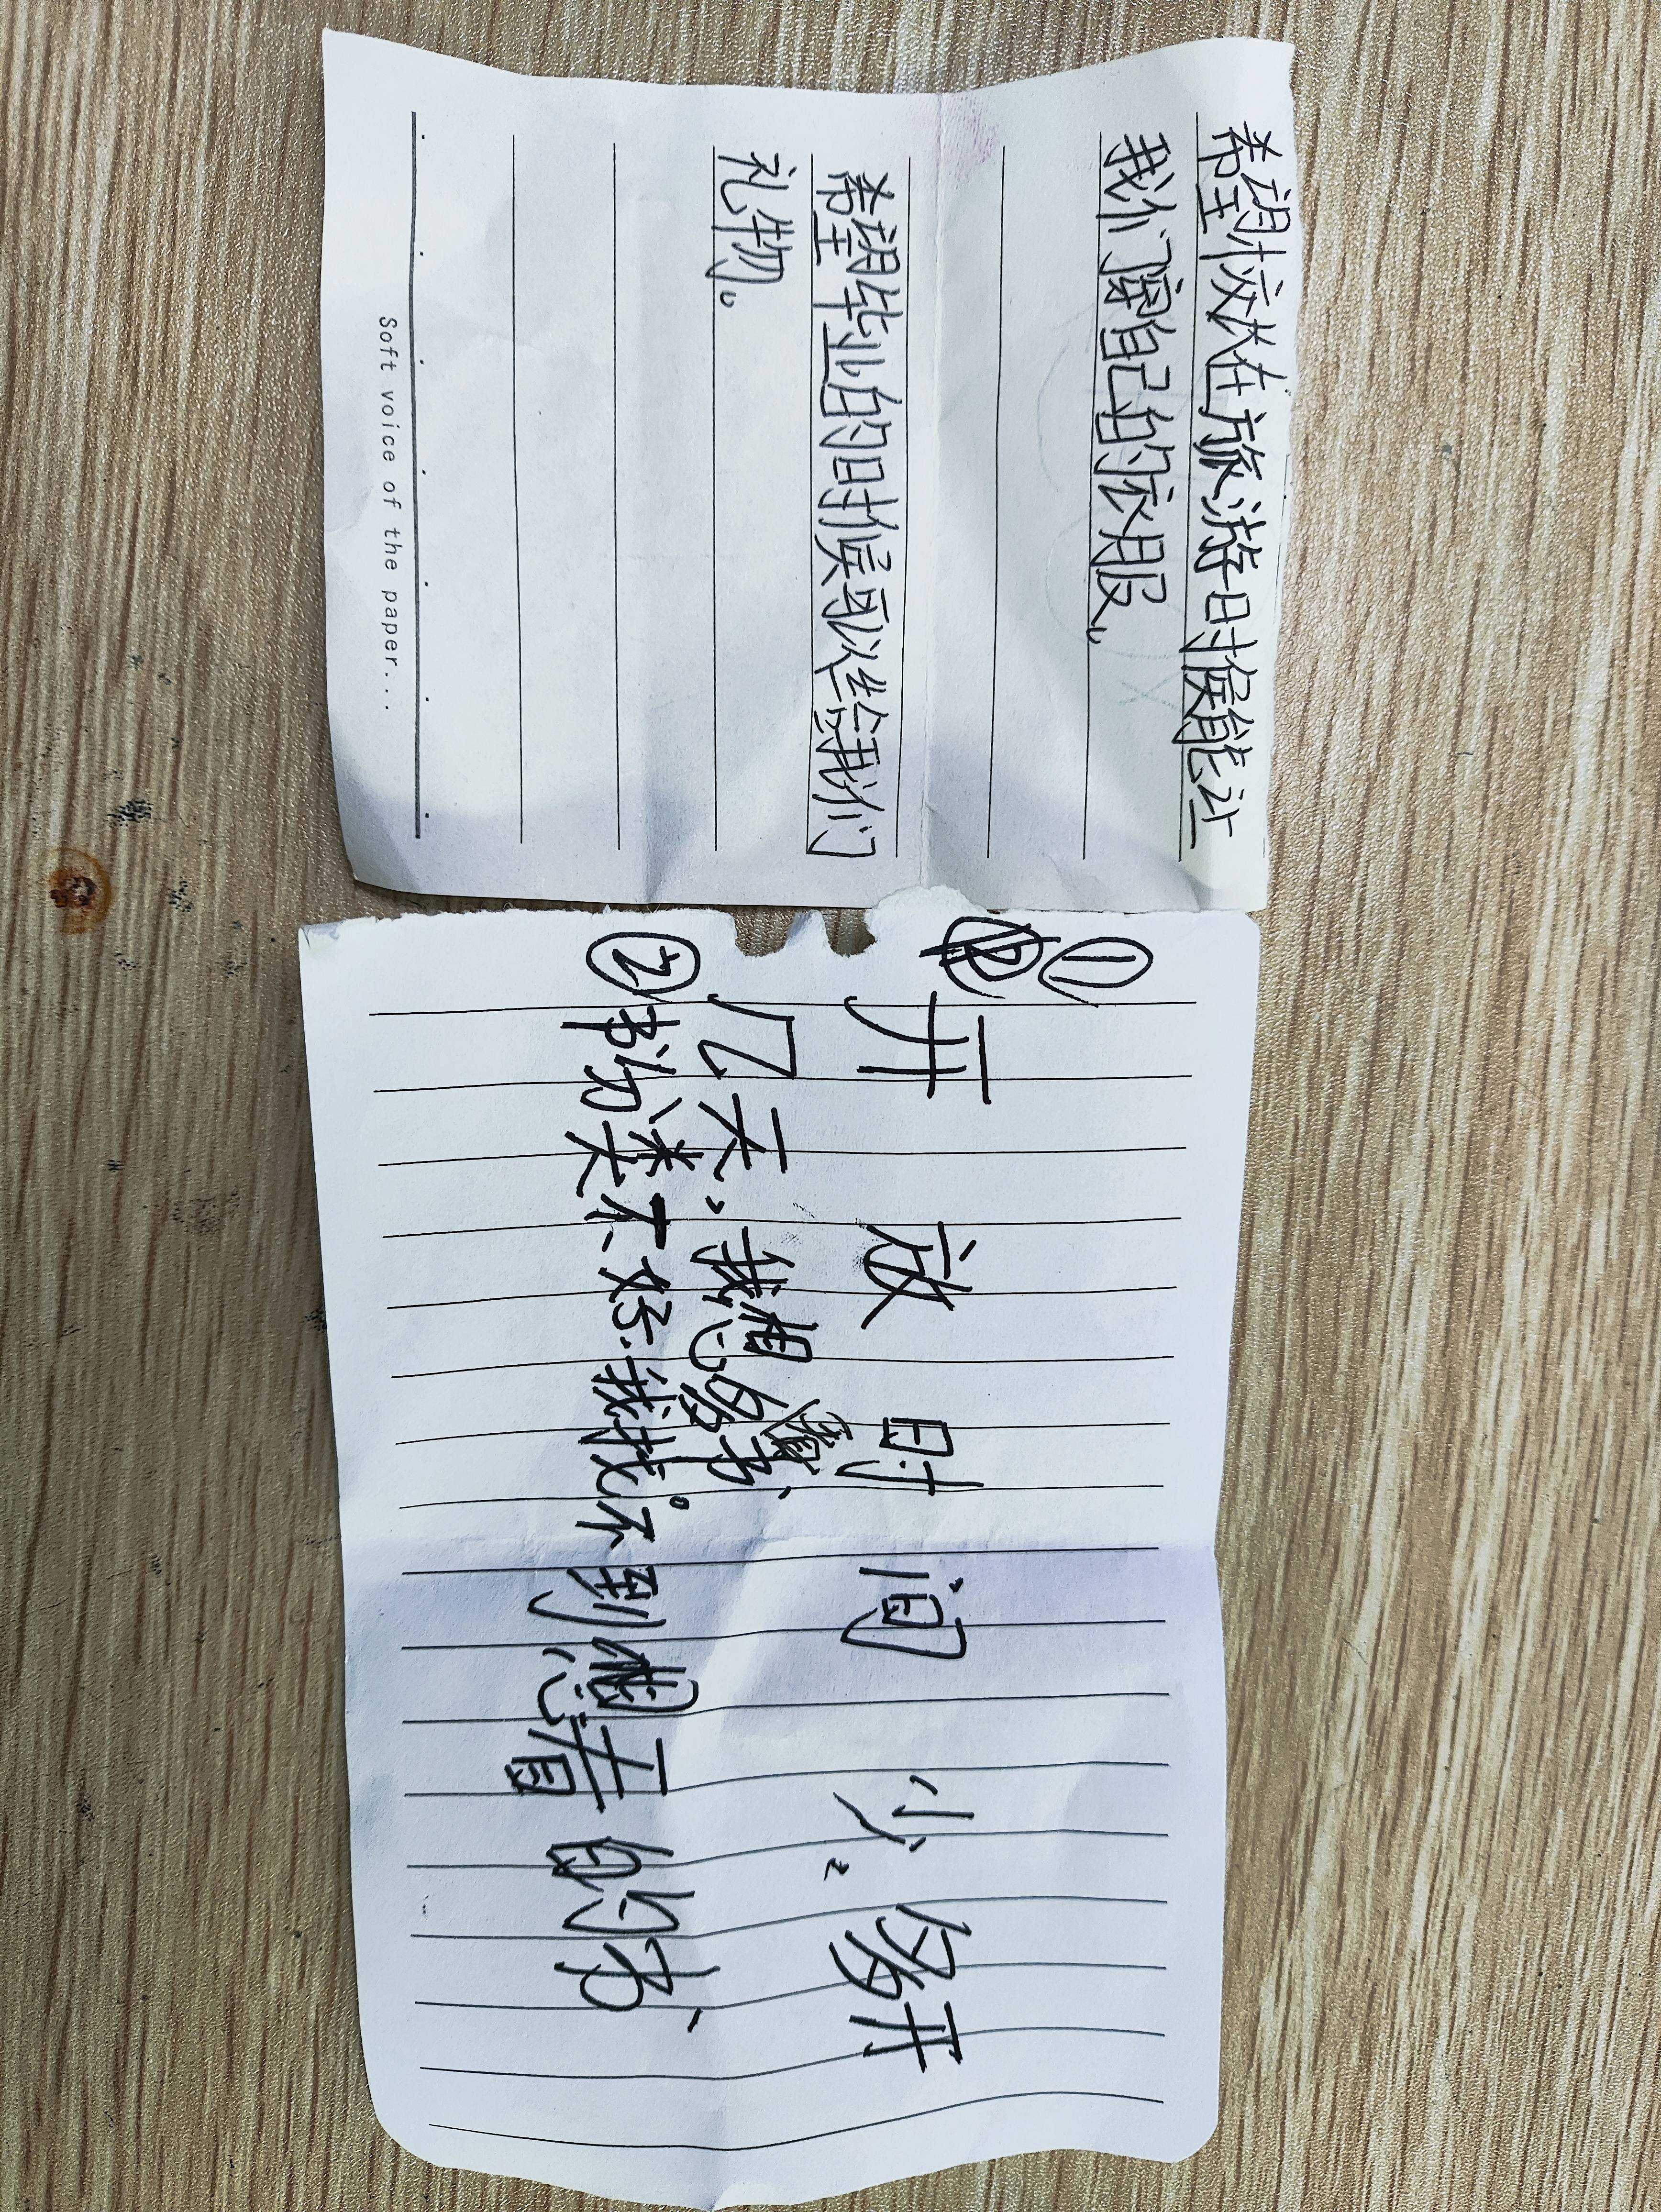 希望校大在旅游时候能让
我们穿自己的衣服。
希望毕业的时候可以给我们
礼物。
Soft voice of the paper...
①
开放时间少。多开
几天,我想多看书
②书的类不好找。我找不到想看的书